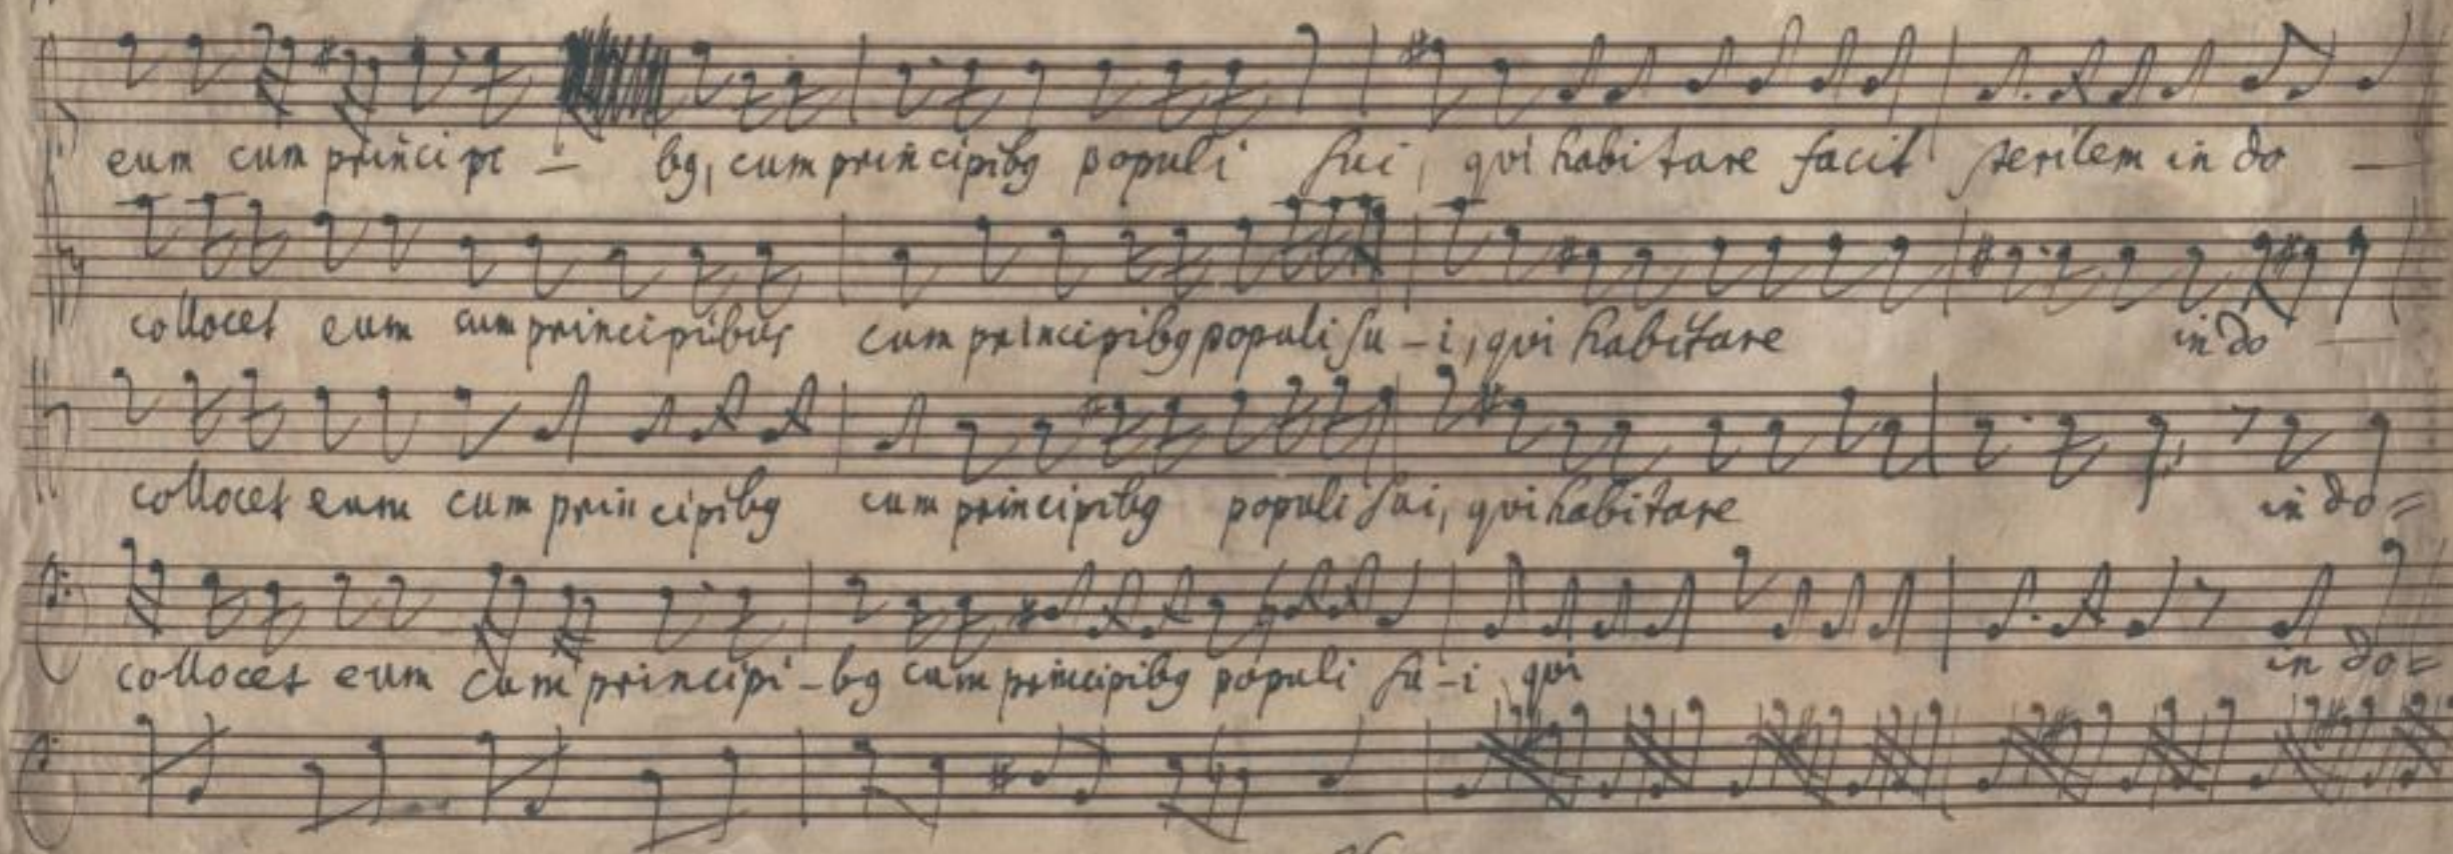 eum cum principi - bꝯ, cum principibꝯ populi sui, qui habitare facit sterilem in do -
collocet eum cum principibus cum principibꝯ populi su - i, qui habitare in do -
collocet eum cum principibꝯ cum principibꝯ populi sui, qui habitare in do =
collocet eum cum principi - bꝯ cum principibꝯ populi su - i qui in do =